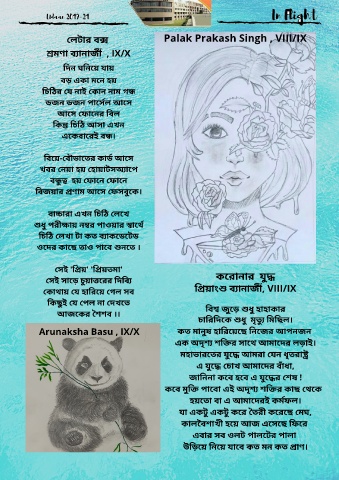 In Flight
লেটার বক্স
শ্রমণা ব্যানার্জী , IX/X
দিন ঘনিয়ে যায়
বড় একা মনে হয়
চিঠির যে নাই কোন নাম গন্ধ
ডজন ডজন পার্সেল আসে
আসে ফোনের বিল
কিন্তু চিঠি আসা এখন
একেবারেই বন্ধ।
বিয়ে-বৌভাতের কার্ড আসে
খবর নেয়া হয় হোয়াটসঅ্যাপে
বন্ধুত্ব হয় ফোনে ফোনে
বিজয়ার প্রণাম আসে ফেসবুকে।
বাচ্চারা এখন চিঠি লেখে
শুধু পরীক্ষায় নম্বর পাওয়ার স্বার্থে
চিঠি লেখা টা কত ব্যাকডেটেড
ওদের কাছে তাও পাবে শুনতে ।
সেই 'প্রিয়' 'প্রিয়তমা'
সেই সাড়ে চুয়াত্তরের দিব্যি
কোথায় যে হারিয়ে গেল সব
কিছুই যে পেল না দেখতে
আজকের শৈশব ।।
Arunaksha Basu , IX/X
Palak Prakash Singh , VIII/IX
করোনার যুদ্ধ
প্রিয়াংশু ব্যানার্জী, VIII/IX
বিশ্ব জুড়ে শুধু হাহাকার
চারিদিকে শুধু মৃত্যু মিছিল।
কত মানুষ হারিয়েছে নিজের আপনজন
এক অদৃশ্য শক্তির সাথে আমাদের লড়াই।
মহাভারতের যুদ্ধে আমরা যেন ধৃতরাষ্ট্র
এ যুদ্ধে চোখ আমাদের বাঁধা,
জানিনা কবে হবে এ যুদ্ধের শেষ !
কবে মুক্তি পাবো এই অদৃশ্য শক্তির কাছ থেকে
হয়তো বা এ আমাদেরই কর্মফল।
যা একটু একটু করে তৈরী করেছে মেঘ,
কালবৈশাখী হয়ে আজ এসেছে ফিরে
এবার সব ওলট পালটের পালা
উড়িয়ে নিয়ে যাবে কত মন কত প্রাণ।